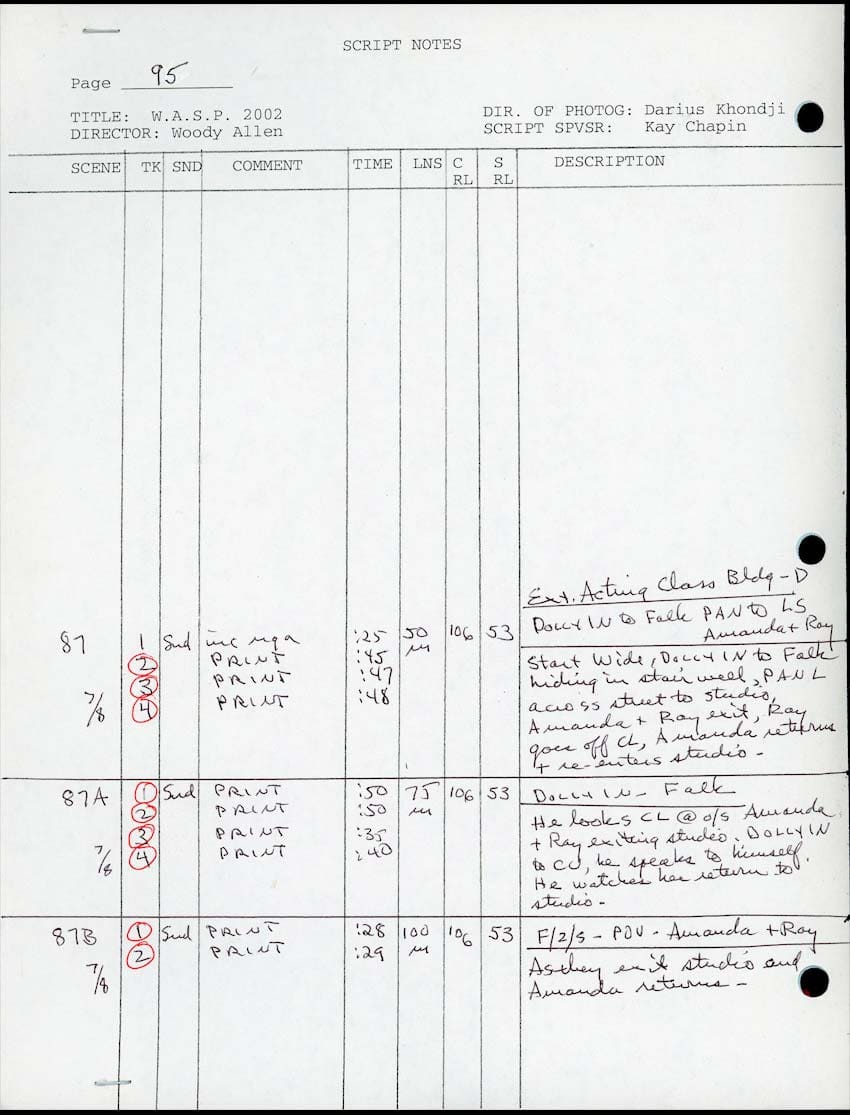 SCRIPT NOTES
Page 95
TITLE: W.A.S.P. 2002
DIRECTOR: Woody Allen
DIR. OF PHOTOG: Darius Khondji
SCRIPT SPVSR: Kay Chapin
SCENE TK SND COMMENT TIME LNS C RL S RL DESCRIPTION
Ext. Acting Class Bldg - D
DOLLY IN to Falk PAN to LS
Amanda + Ray
87 1 Snd inc nga :25 50 106 53
2 PRINT :45
3 PRINT :47
7/8 4 PRINT :48
Start Wide, DOLLY IN to Falk
hiding in stairwell, PAN L
across street to studio,
Amanda + Ray exit, Ray
goes off CL, Amanda returns
+ re-enters studio -
87A 1 Snd PRINT :50 75 106 53 DOLLY IN - Falk
2 PRINT :50
3 PRINT :35
7/8 4 PRINT :40
He looks CL @ o/s Amanda
+ Ray exiting studio. DOLLY IN
to CU, he speaks to himself.
He watches her return to
studio -
87B 1 Snd PRINT :28 100 106 53 F/2/S - POV - Amanda + Ray
2 PRINT :29
7/8
As they exit studio and
Amanda returns -